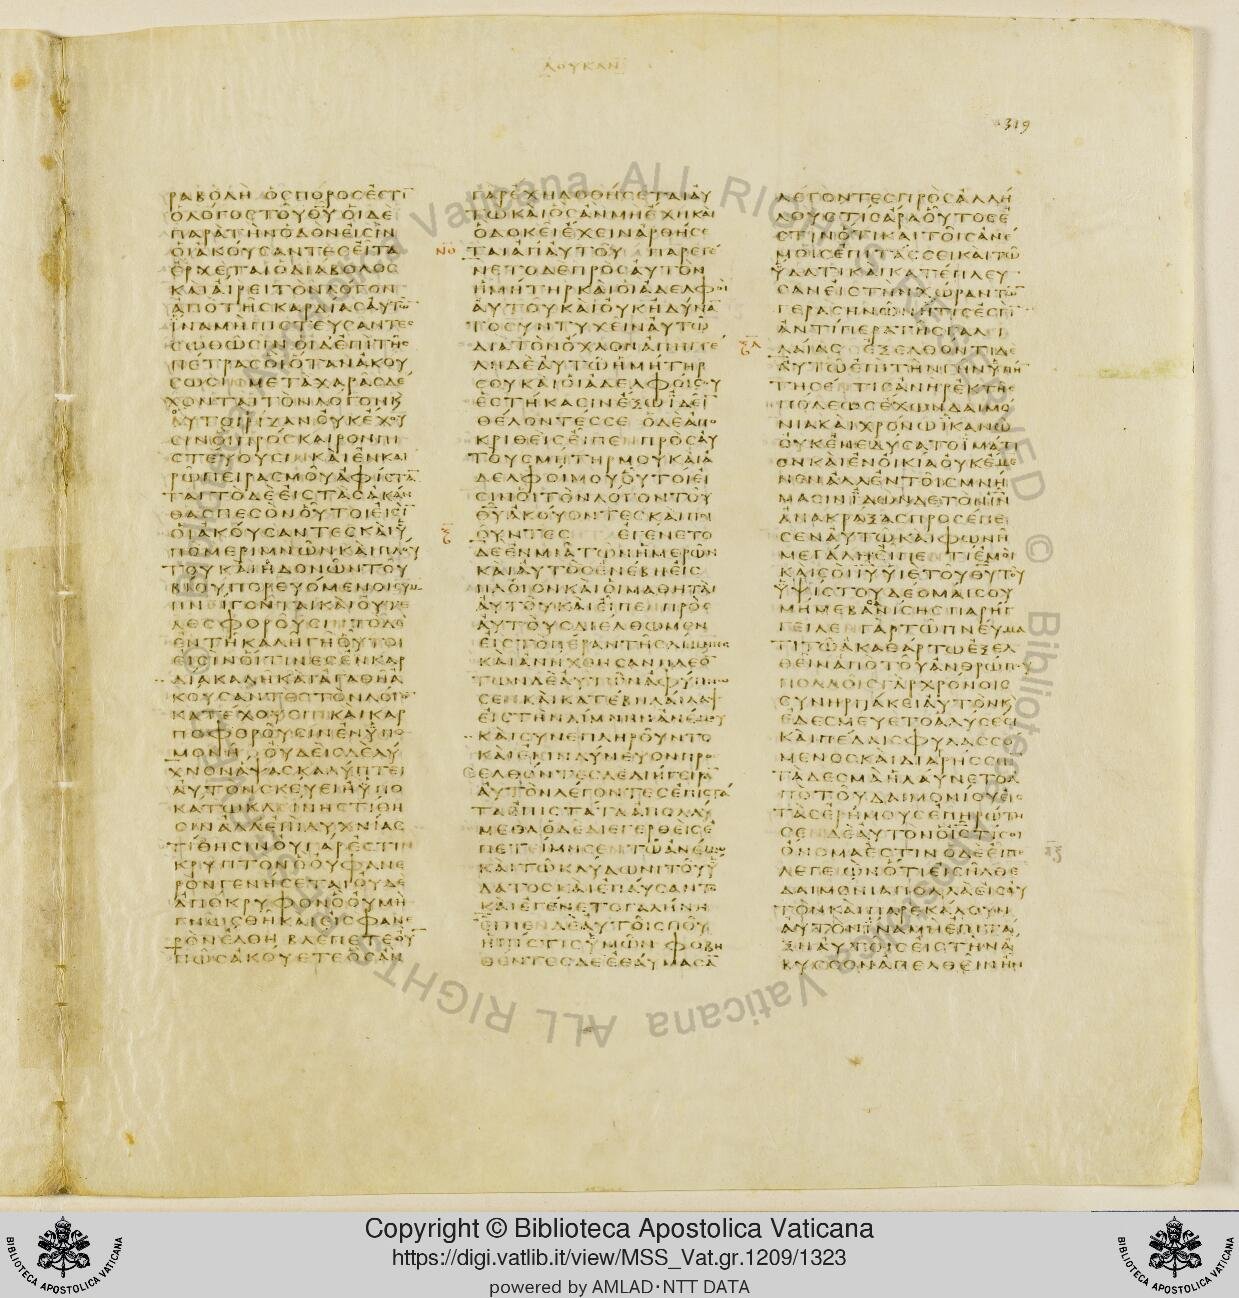 ΛΟΥΚΑΝ
1319
ΡΑΒΟΛΗ Ο ΣΠΟΡΟΣ ΕΣΤΙ
Ο ΛΟΓΟΣ ΤΟΥ ΘΥ ΟΙ ΔΕ
ΠΑΡΑ ΤΗΝ ΟΔΟΝ ΕΙΣΙΝ
ΟΙ ΑΚΟΥΣΑΝΤΕΣ ΕΙΤΑ
ΕΡΧΕΤΑΙ Ο ΔΙΑΒΟΛΟΣ
ΚΑΙ ΑΙΡΕΙ ΤΟΝ ΛΟΓΟΝ
ΑΠΟ ΤΗΣ ΚΑΡΔΙΑΣ ΑΥΤΩ
ΙΝΑ ΜΗ ΠΙΣΤΕΥΣΑΝΤΕΣ
ΣΩΘΩΣΙΝ ΟΙ ΔΕ ΕΠΙ ΤΗΣ
ΠΕΤΡΑΣ ΟΙ ΟΤΑΝ ΑΚΟΥ
ΣΩΣΙΝ ΜΕΤΑ ΧΑΡΑΣ ΔΕ
ΧΟΝΤΑΙ ΤΟΝ ΛΟΓΟΝ Κ
ΑΥΤΟΙ ΡΙΖΑΝ ΟΥΚ ΕΧΟΥ
ΣΙΝ ΟΙ ΠΡΟΣ ΚΑΙΡΟΝ ΠΙ
ΣΤΕΥΟΥΣΙΝ ΚΑΙ ΕΝ ΚΑΙ
ΡΩ ΠΕΙΡΑΣΜΟΥ ΑΦΙΣΤΑ
ΤΑΙ ΤΟ ΔΕ ΕΙΣ ΤΑΣ ΑΚΑΝ
ΘΑΣ ΠΕΣΟΝ ΟΥΤΟΙ ΕΙΣΙ
ΟΙ ΑΚΟΥΣΑΝΤΕΣ ΚΑΙ Υ
ΠΟ ΜΕΡΙΜΝΩΝ ΚΑΙ ΠΛΟΥ
ΤΟΥ ΚΑΙ ΗΔΟΝΩΝ ΤΟΥ
ΒΙΟΥ ΠΟΡΕΥΟΜΕΝΟΙ ΣΥΜ
ΠΝΙΓΟΝΤΑΙ ΚΑΙ ΟΥ ΤΕ
ΛΕΣΦΟΡΟΥΣΙΝ ΤΟ ΔΕ
ΕΝ ΤΗ ΚΑΛΗ ΓΗ ΟΥΤΟΙ
ΕΙΣΙΝ ΟΙΤΙΝΕΣ ΕΝ ΚΑΡ
ΔΙΑ ΚΑΛΗ ΚΑΙ ΑΓΑΘΗ Α
ΚΟΥΣΑΝΤΕΣ ΤΟΝ ΛΟΓΟΝ
ΚΑΤΕΧΟΥΣΙΝ ΚΑΙ ΚΑΡ
ΠΟΦΟΡΟΥΣΙΝ ΕΝ ΥΠΟ
ΜΟΝΗ ΟΥΔΕΙΣ ΔΕ ΛΥ
ΧΝΟΝ ΑΨΑΣ ΚΑΛΥΠΤΕΙ
ΑΥΤΟΝ ΣΚΕΥΕΙ Η ΥΠΟ
ΚΑΤΩ ΚΛΙΝΗΣ ΤΙΘΗ
ΣΙΝ ΑΛΛ ΕΠΙ ΛΥΧΝΙΑΣ
ΤΙΘΗΣΙΝ ΟΥ ΓΑΡ ΕΣΤΙΝ
ΚΡΥΠΤΟΝ Ο ΟΥ ΦΑΝΕ
ΡΟΝ ΓΕΝΗΣΕΤΑΙ ΟΥΔΕ
ΑΠΟΚΡΥΦΟΝ Ο ΟΥ ΜΗ
ΓΝΩΣΘΗ ΚΑΙ ΕΙΣ ΦΑΝΕ
ΡΟΝ ΕΛΘΗ ΒΛΕΠΕΤΕ ΟΥ
ΠΩΣ ΑΚΟΥΕΤΕ ΟΣ ΑΝ
ΓΑΡ ΕΧΗ ΔΟΘΗΣΕΤΑΙ ΑΥ
ΤΩ ΚΑΙ ΟΣ ΑΝ ΜΗ ΕΧΗ ΚΑΙ
Ο ΔΟΚΕΙ ΕΧΕΙΝ ΑΡΘΗΣΕ
ΝΘ ΤΑΙ ΑΠ ΑΥΤΟΥ ΠΑΡΕΓΕ
ΝΕΤΟ ΔΕ ΠΡΟΣ ΑΥΤΟΝ
Η ΜΗΤΗΡ ΚΑΙ ΟΙ ΑΔΕΛΦΟΙ
ΑΥΤΟΥ ΚΑΙ ΟΥΚ ΗΔΥΝΑ
ΤΟ ΣΥΝΤΥΧΕΙΝ ΑΥΤΩ
ΔΙΑ ΤΟΝ ΟΧΛΟΝ ΑΠΗΓΓΕ
ΛΗ ΔΕ ΑΥΤΩ Η ΜΗΤΗΡ
ΣΟΥ ΚΑΙ ΟΙ ΑΔΕΛΦΟΙ ΣΟΥ
ΕΣΤΗΚΑΣΙΝ ΕΞΩ ΙΔΕΙ
ΘΕΛΟΝΤΕΣ ΣΕ Ο ΔΕ ΑΠΟ
ΚΡΙΘΕΙΣ ΕΙΠΕΝ ΠΡΟΣ ΑΥ
ΤΟΥΣ ΜΗΤΗΡ ΜΟΥ ΚΑΙ Α
ΔΕΛΦΟΙ ΜΟΥ ΟΥΤΟΙ ΕΙ
ΣΙΝ ΟΙ ΤΟΝ ΛΟΓΟΝ ΤΟΥ
ΘΥ ΑΚΟΥΟΝΤΕΣ ΚΑΙ ΠΟΙ
Ξ ΟΥΝΤΕΣ ΕΓΕΝΕΤΟ
ΔΕ ΕΝ ΜΙΑ ΤΩΝ ΗΜΕΡΩΝ
ΚΑΙ ΑΥΤΟΣ ΕΝΕΒΗ ΕΙΣ
ΠΛΟΙΟΝ ΚΑΙ ΟΙ ΜΑΘΗΤΑΙ
ΑΥΤΟΥ ΚΑΙ ΕΙΠΕΝ ΠΡΟΣ
ΑΥΤΟΥΣ ΔΙΕΛΘΩΜΕΝ
ΕΙΣ ΤΟ ΠΕΡΑΝ ΤΗΣ ΛΙΜΝΗΣ
ΚΑΙ ΑΝΗΧΘΗΣΑΝ ΠΛΕΟ
ΤΩΝ ΔΕ ΑΥΤΩΝ ΑΦΥΠΝΩ
ΣΕΝ ΚΑΙ ΚΑΤΕΒΗ ΛΑΙΛΑΨ
ΕΙΣ ΤΗΝ ΛΙΜΝΗΝ ΑΝΕΜΟΥ
ΚΑΙ ΣΥΝΕΠΛΗΡΟΥΝΤΟ
ΚΑΙ ΕΚΙΝΔΥΝΕΥΟΝ ΠΡΟ
ΣΕΛΘΟΝΤΕΣ ΔΕ ΔΙΗΓΕΙΡΑ
ΑΥΤΟΝ ΛΕΓΟΝΤΕΣ ΕΠΙΣΤΑ
ΤΑ ΕΠΙΣΤΑΤΑ ΑΠΟΛΛΥ
ΜΕΘΑ Ο ΔΕ ΔΙΕΓΕΡΘΕΙΣ Ε
ΠΕΤΕΙΜΗΣΕΝ ΤΩ ΑΝΕΜΩ
ΚΑΙ ΤΩ ΚΛΥΔΩΝΙ ΤΟΥ Υ
ΔΑΤΟΣ ΚΑΙ ΕΠΑΥΣΑΝΤΟ
ΚΑΙ ΕΓΕΝΕΤΟ ΓΑΛΗΝΗ
ΕΙΠΕΝ ΔΕ ΑΥΤΟΙΣ ΠΟΥ
Η ΠΙΣΤΙΣ ΥΜΩΝ ΦΟΒΗ
ΘΕΝΤΕΣ ΔΕ ΕΘΑΥΜΑΣΑ
ΛΕΓΟΝΤΕΣ ΠΡΟΣ ΑΛΛΗ
ΛΟΥΣ ΤΙΣ ΑΡΑ ΟΥΤΟΣ Ε
ΣΤΙΝ ΟΤΙ ΚΑΙ ΤΟΙΣ ΑΝΕ
ΜΟΙΣ ΕΠΙΤΑΣΣΕΙ ΚΑΙ ΤΩ
ΥΔΑΤΙ ΚΑΙ ΚΑΤΕΠΛΕΥ
ΣΑΝ ΕΙΣ ΤΗΝ ΧΩΡΑΝ ΤΩ
ΓΕΡΑΣΗΝΩΝ ΗΤΙΣ ΕΣΤΙ
ΑΝΤΙΠΕΡΑ ΤΗΣ ΓΑΛΙ
ΞΑ ΛΑΙΑΣ ΕΞΕΛΘΟΝΤΙ ΔΕ
ΑΥΤΩ ΕΠΙ ΤΗΝ ΓΗΝ ΥΠΗ
ΤΗΣΕΝ ΤΙΣ ΑΝΗΡ ΕΚ ΤΗΣ
ΠΟΛΕΩΣ ΕΧΩΝ ΔΑΙΜΟ
ΝΙΑ ΚΑΙ ΧΡΟΝΩ ΙΚΑΝΩ
ΟΥΚ ΕΝΕΔΥΣΑΤΟ ΙΜΑΤΙ
ΟΝ ΚΑΙ ΕΝ ΟΙΚΙΑ ΟΥΚ ΕΜΕ
ΝΕΝ ΑΛΛ ΕΝ ΤΟΙΣ ΜΝΗ
ΜΑΣΙΝ ΙΔΩΝ ΔΕ ΤΟΝ ΙΝ
ΑΝΑΚΡΑΞΑΣ ΠΡΟΣΕΠΕ
ΣΕΝ ΑΥΤΩ ΚΑΙ ΦΩΝΗ
ΜΕΓΑΛΗ ΕΙΠΕΝ ΤΙ ΕΜΟΙ
ΚΑΙ ΣΟΙ ΙΥ ΥΙΕ ΤΟΥ ΘΥ ΤΟΥ
ΥΨΙΣΤΟΥ ΔΕΟΜΑΙ ΣΟΥ
ΜΗ ΜΕ ΒΑΣΑΝΙΣΗΣ ΠΑΡΗΓ
ΓΕΙΛΕΝ ΓΑΡ ΤΩ ΠΝΕΥΜΑ
ΤΙ ΤΩ ΑΚΑΘΑΡΤΩ ΕΞΕΛ
ΘΕΙΝ ΑΠΟ ΤΟΥ ΑΝΘΡΩΠΟΥ
ΠΟΛΛΟΙΣ ΓΑΡ ΧΡΟΝΟΙΣ
ΣΥΝΗΡΠΑΚΕΙ ΑΥΤΟΝ Κ
ΕΔΕΣΜΕΥΕΤΟ ΑΛΥΣΕΣΙ
ΚΑΙ ΠΕΔΑΙΣ ΦΥΛΑΣΣΟ
ΜΕΝΟΣ ΚΑΙ ΔΙΑΡΗΣΣΩ
ΤΑ ΔΕΣΜΑ ΗΛΑΥΝΕΤΟ Α
ΠΟ ΤΟΥ ΔΑΙΜΟΝΙΟΥ ΕΙΣ
ΤΑΣ ΕΡΗΜΟΥΣ ΕΠΗΡΩΤΗ
ΣΕΝ ΔΕ ΑΥΤΟΝ Ο ΙΣ ΤΙ ΣΟΙ
ΟΝΟΜΑ ΕΣΤΙΝ Ο ΔΕ ΕΙΠΕ
ΛΕΓΕΩΝ ΟΤΙ ΕΙΣΗΛΘΕ
ΔΑΙΜΟΝΙΑ ΠΟΛΛΑ ΕΙΣ ΑΥ
ΤΟΝ ΚΑΙ ΠΑΡΕΚΑΛΟΥΝ
ΑΥΤΟΝ ΙΝΑ ΜΗ ΕΠΙΤΑ
ΞΗ ΑΥΤΟΙΣ ΕΙΣ ΤΗΝ Α
ΒΥΣΣΟΝ ΑΠΕΛΘΕΙΝ ΗΝ
Copyright © Biblioteca Apostolica Vaticana
https://digi.vatlib.it/view/MSS_Vat.gr.1209/1323
powered by AMLAD·NTT DATA
BIBLIOTECA APOSTOLICA VATICANA
BIBLIOTECA APOSTOLICA VATICANA